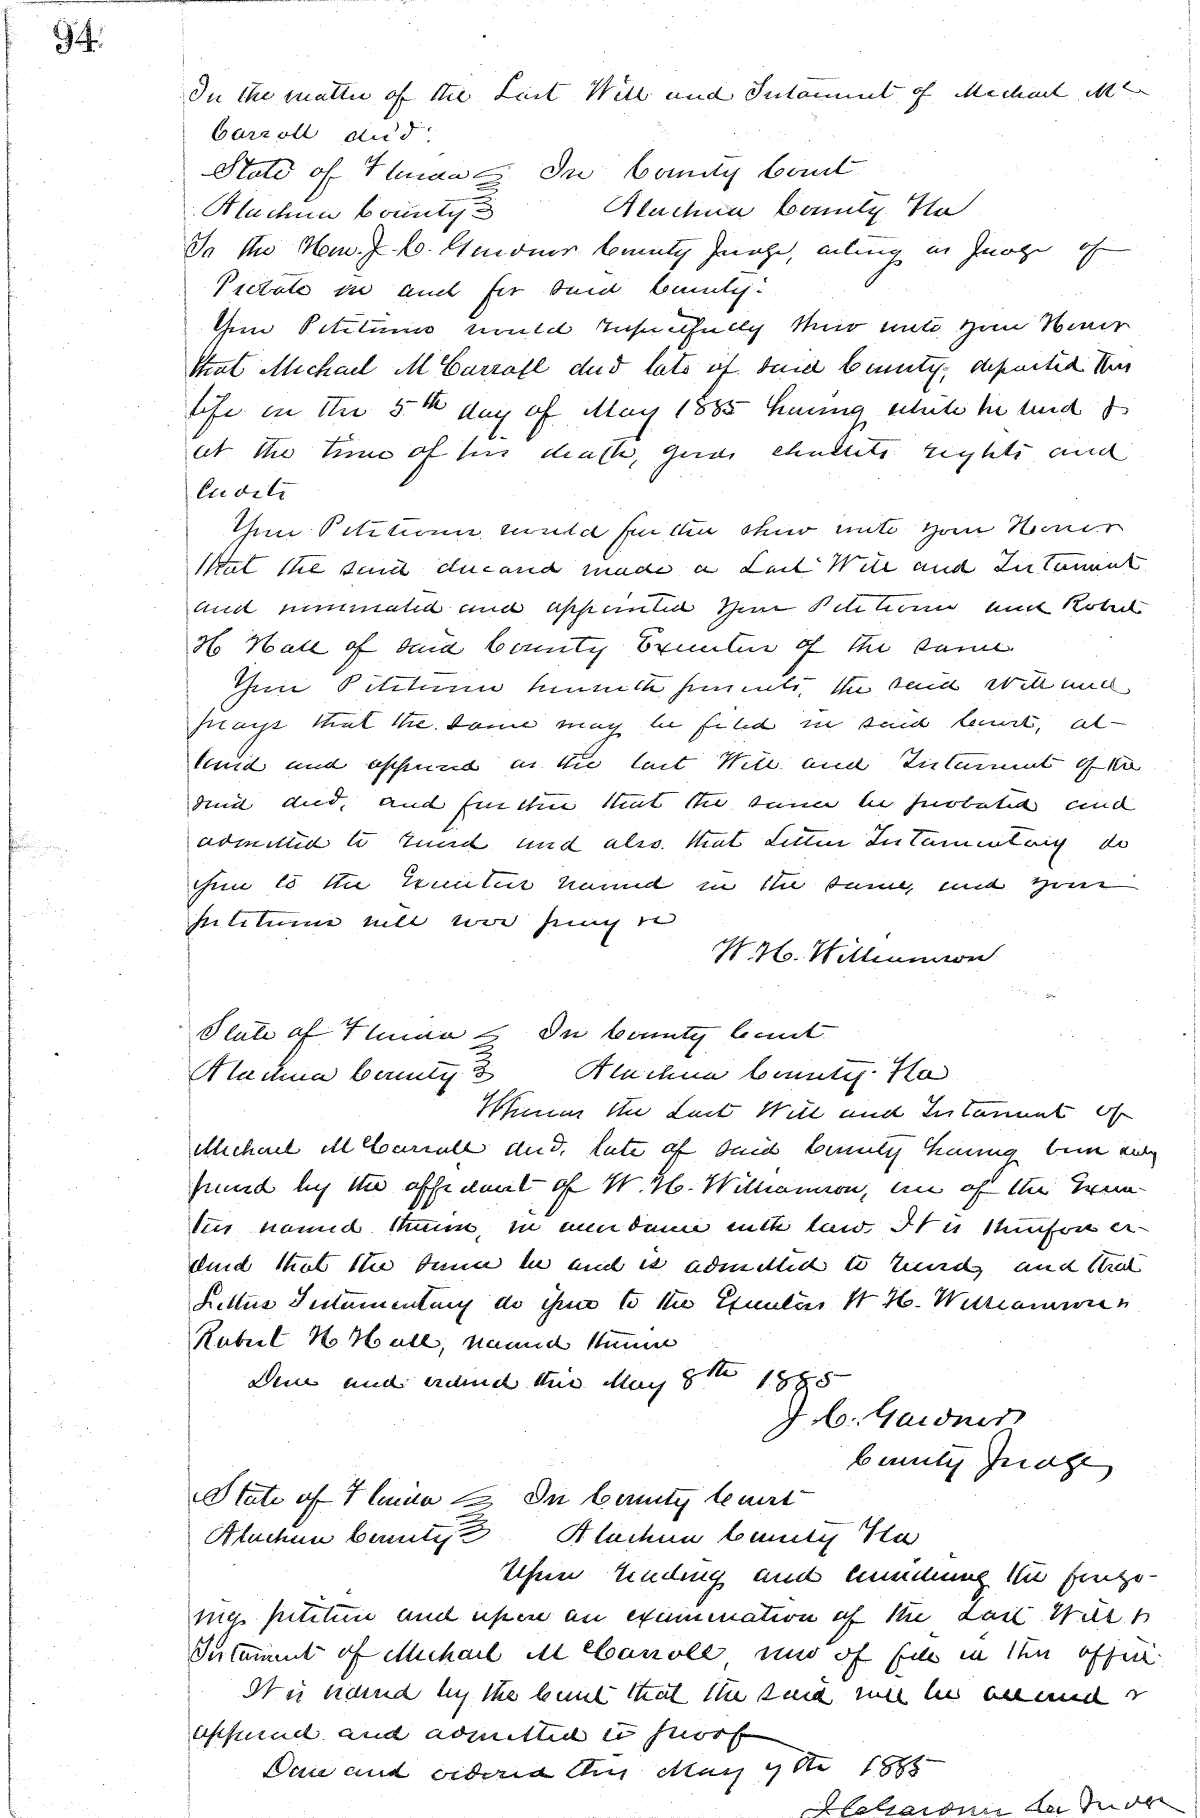 94.
In the matter of the Last Will and Testament of Michael Mc
Carroll decd.
State of Florida In County Court
Alachua County Alachua County Fla
To the Hon. J. C. Gardner County Judge, acting as Judge of
Probate in and for said County:
Your Petitioner would respectfully show unto your Honor
that Michael M Carroll decd late of said County, departed this
life on the 5th day of May 1885 having while he lived &
at the time of his death, goods chattels rights and
Credits
Your Petitioner would further show unto your Honor
that the said deceased made a Last Will and Testament
and nominated and appointed your Petitioner and Robert
H Hall of said County Executors of the same
Your Petitioner herewith presents, the said will and
prays that the same may be filed in said Court, al-
lowed and approved as the last Will and Testament of the
said decd, and further that the same be probated and
admitted to record and also that Letters Testamentary do
issue to the Executors named in the same, and your
petitioner will ever pray &c
W. H. Williamson
State of Florida In County Court
Alachua County Alachua County Fla
Whereas the Last Will and Testament of
Michael M Carroll decd, late of said County having been duly
proved by the affidavit of W. H. Williamson, one of the Execu-
tors named therein, in accordance with law. It is therefore or-
dered that the same be and is admitted to record, and that
Letters Testamentary do issue to the Executors W H. Williamson &
Robert H Hall, named therein
Done and ordered this May 8th 1885
J. C. Gardner
County Judge
State of Florida In County Court
Alachua County Alachua County Fla
Upon reading and considering the forego-
ing petition and upon an examination of the Last Will &
Testament of Michael M Carroll, now of file in this office
It is ordered by the Court that the said will be allowed &
approved and admitted to proof
Done and ordered this May 7th 1885
J C Gardner Co Judge